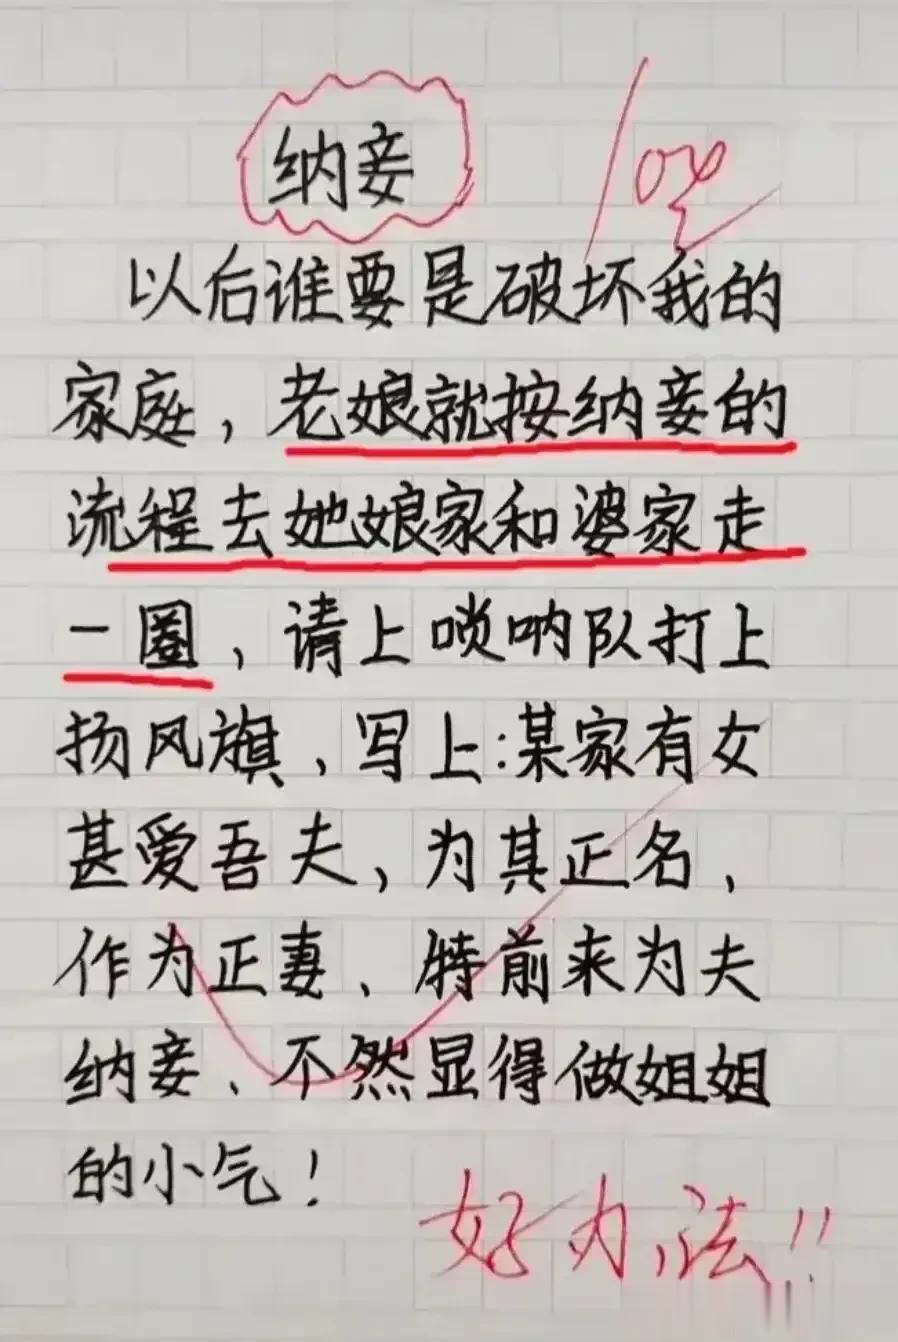 纳妾
100
以后谁要是破坏我的
家庭，老娘就按纳妾的
流程去她娘家和婆家走
一圈，请上唢呐队打上
扬风旗，写上：某家有女
甚爱吾夫，为其正名，
作为正妻、特前来为夫
纳妾、不然显得做姐姐
的小气！
好办法!!